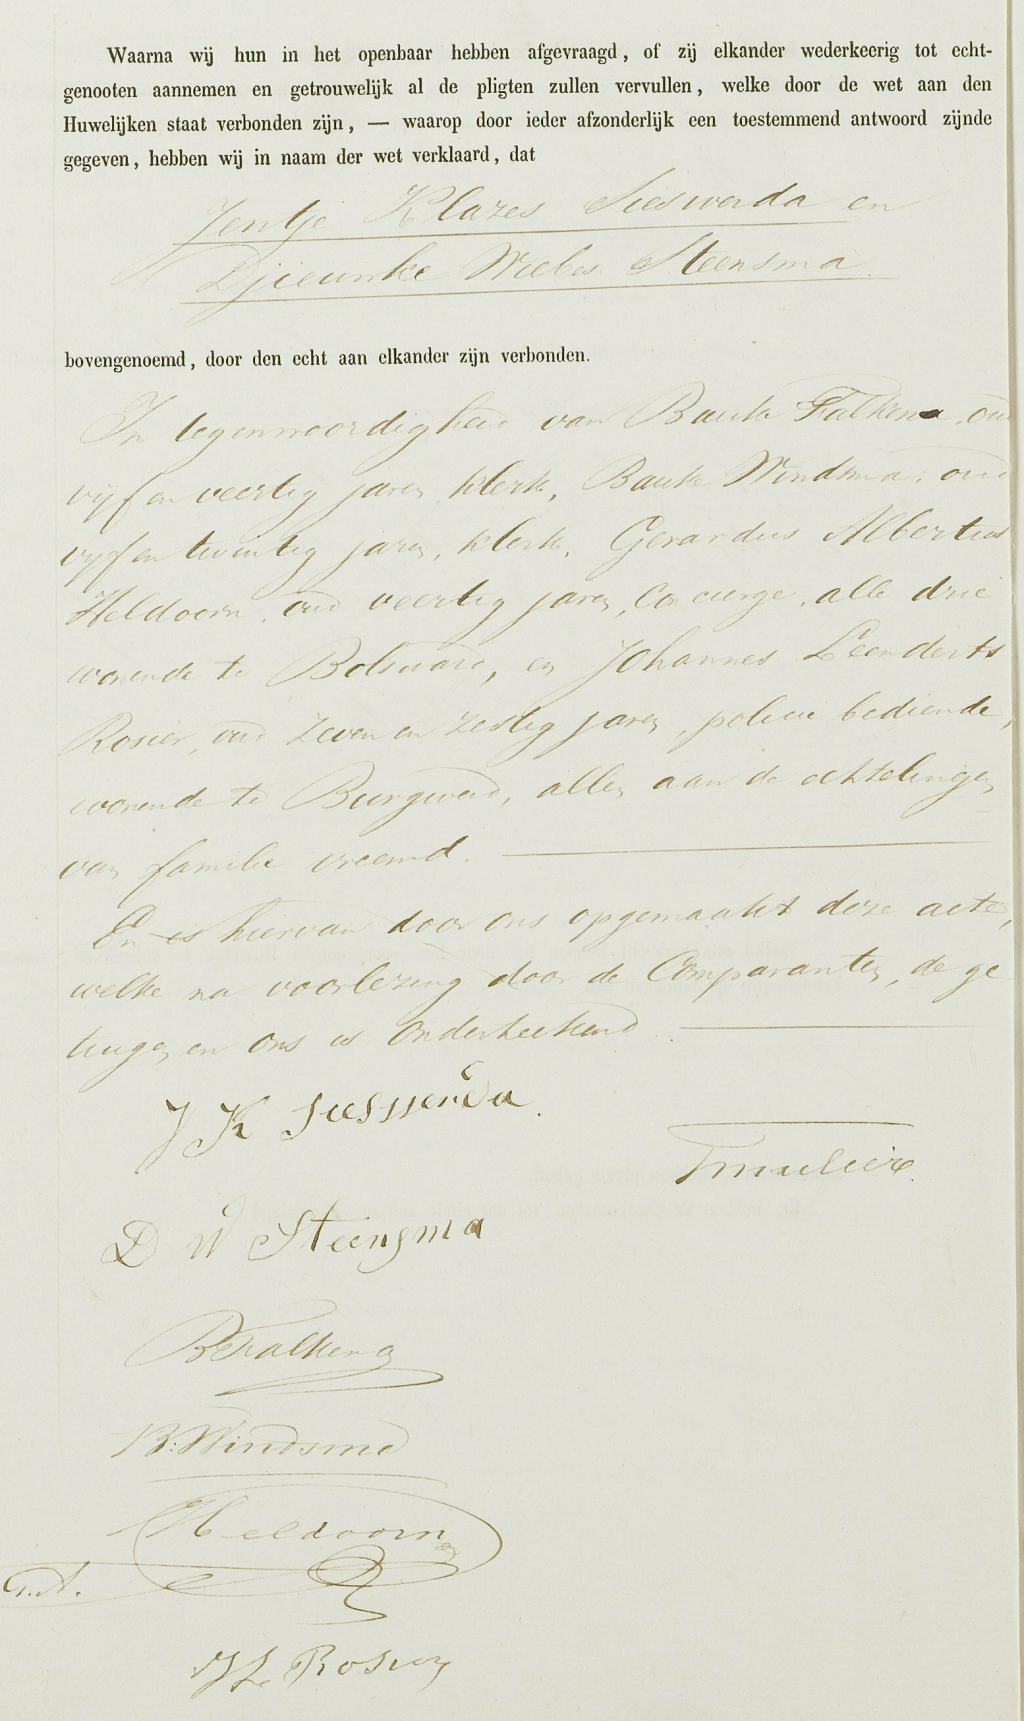 Waarna wij hun in het openbaar hebben afgevraagd, of zij elkander wederkeerig tot echt-
genooten aannemen en getrouwelijk al de pligten zullen vervullen, welke door de wet aan den
Huwelijken staat verbonden zijn, — waarop door ieder afzonderlijk een toestemmend antwoord zijnde
gegeven, hebben wij in naam der wet verklaard, dat
Jentje Klazes Sieswerda en
Djieuwke Wiebes Steensma.
bovengenoemd, door den echt aan elkander zijn verbonden.
In tegenwoordigheid van Bauke Falkena, oud
vijf en veertig jaren, klerk, Bauke Windsma, oud
vijf en twintig jaren, klerk, Gerardus Albertus
Heldoorn, oud veertig jaren, Concierge, alle drie
wonende te Bolsward, en Johannes Leenderts
Rosier, oud zeven en zestig jaren, policie bediende,
wonende te Burgwerd, allen aan de echtelingen
van familie vreemd.
En is hiervan door ons opgemaakt deze acte,
welke na voorlezing door de Comparanten, de ge
tuigen en ons is onderteekend.
J K Sieswerda.
D W Steensma
B Falkena
B: Windsma
G.A. Heldoorn
J L Rosier